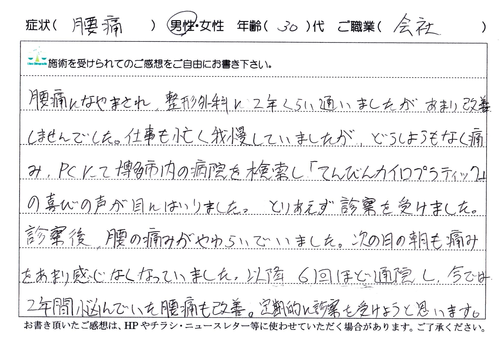 症状( 腰痛 ) 男性・女性 年齢( 30 )代 ご職業( 会社 )
施術を受けられてのご感想をご自由にお書き下さい。
腰痛になやまされ、整形外科に2年くらい通いましたがあまり改善
しませんでした。仕事も忙く我慢していましたが、どうしようもなく痛
み、PCにて博多市内の病院を検索し「てんびんカイロプラティック」
の喜びの声が目にはいりました。とりあえず診察を受けました。
診察後、腰の痛みがやわらいでいました。次の日の朝も痛み
をあまり感じなくなっていました。以降6回ほど通院し、今では
2年間悩んでいた腰痛も改善。定期的に診察を受けようと思います。
お書き頂いたご感想は、HPやチラシ・ニュースレター等に使わせていただく場合があります。ご了承ください。